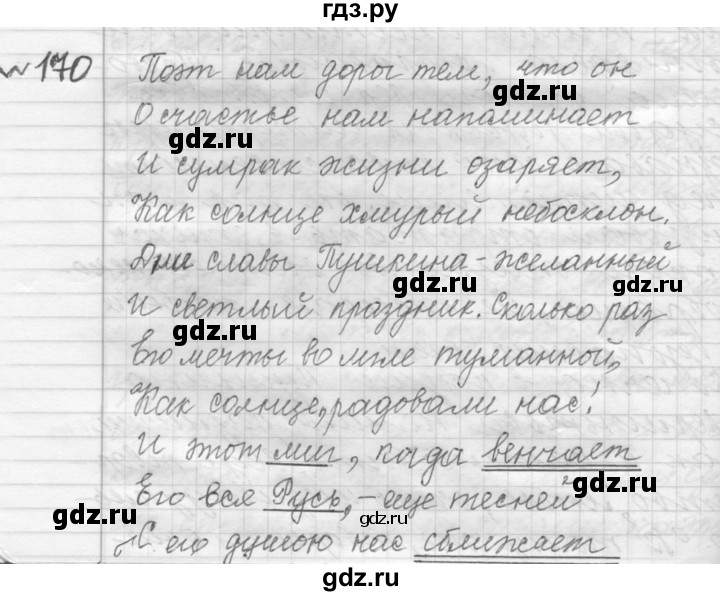 гдз.ру
№170
Поэт нам дорог тем, что он
gdz.ru
О счастье нам напоминает
gdz.ru
И сумрак жизни озаряет,
Как солнце хмурый небосклон.
gdz.ru
Дни славы Пушкина - желанный
gdz.ru
gdz.ru
И светлый праздник. Сколько раз
gdz.ru
Его мечты во мгле туманной,
gdz.ru
Как солнце, радовали нас!
И этот миг, когда венчает
gdz.ru
Его вся Русь, - еще тесней
gdz.ru
gdz.ru
С его душою нас сближает
gdz.ru